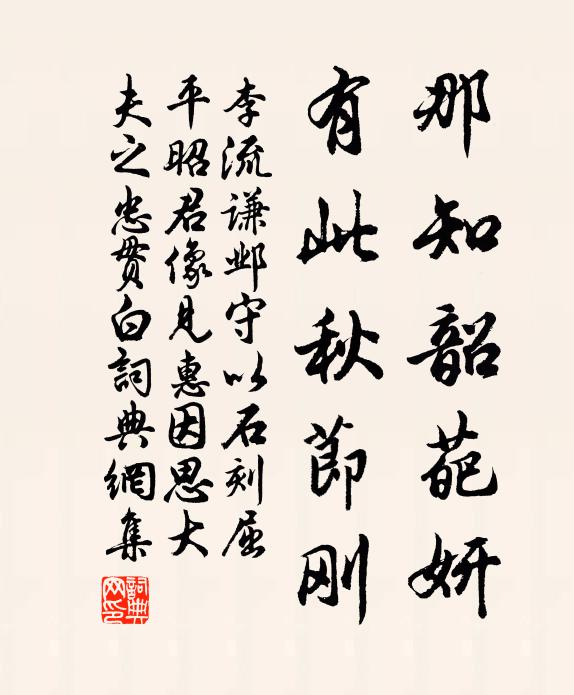 那知韶葩妍
有此秋節刚
李流谦邺守以石刻屈
平昭君像见惠因思大
夫之忠贯白詞典網集
詞典网印